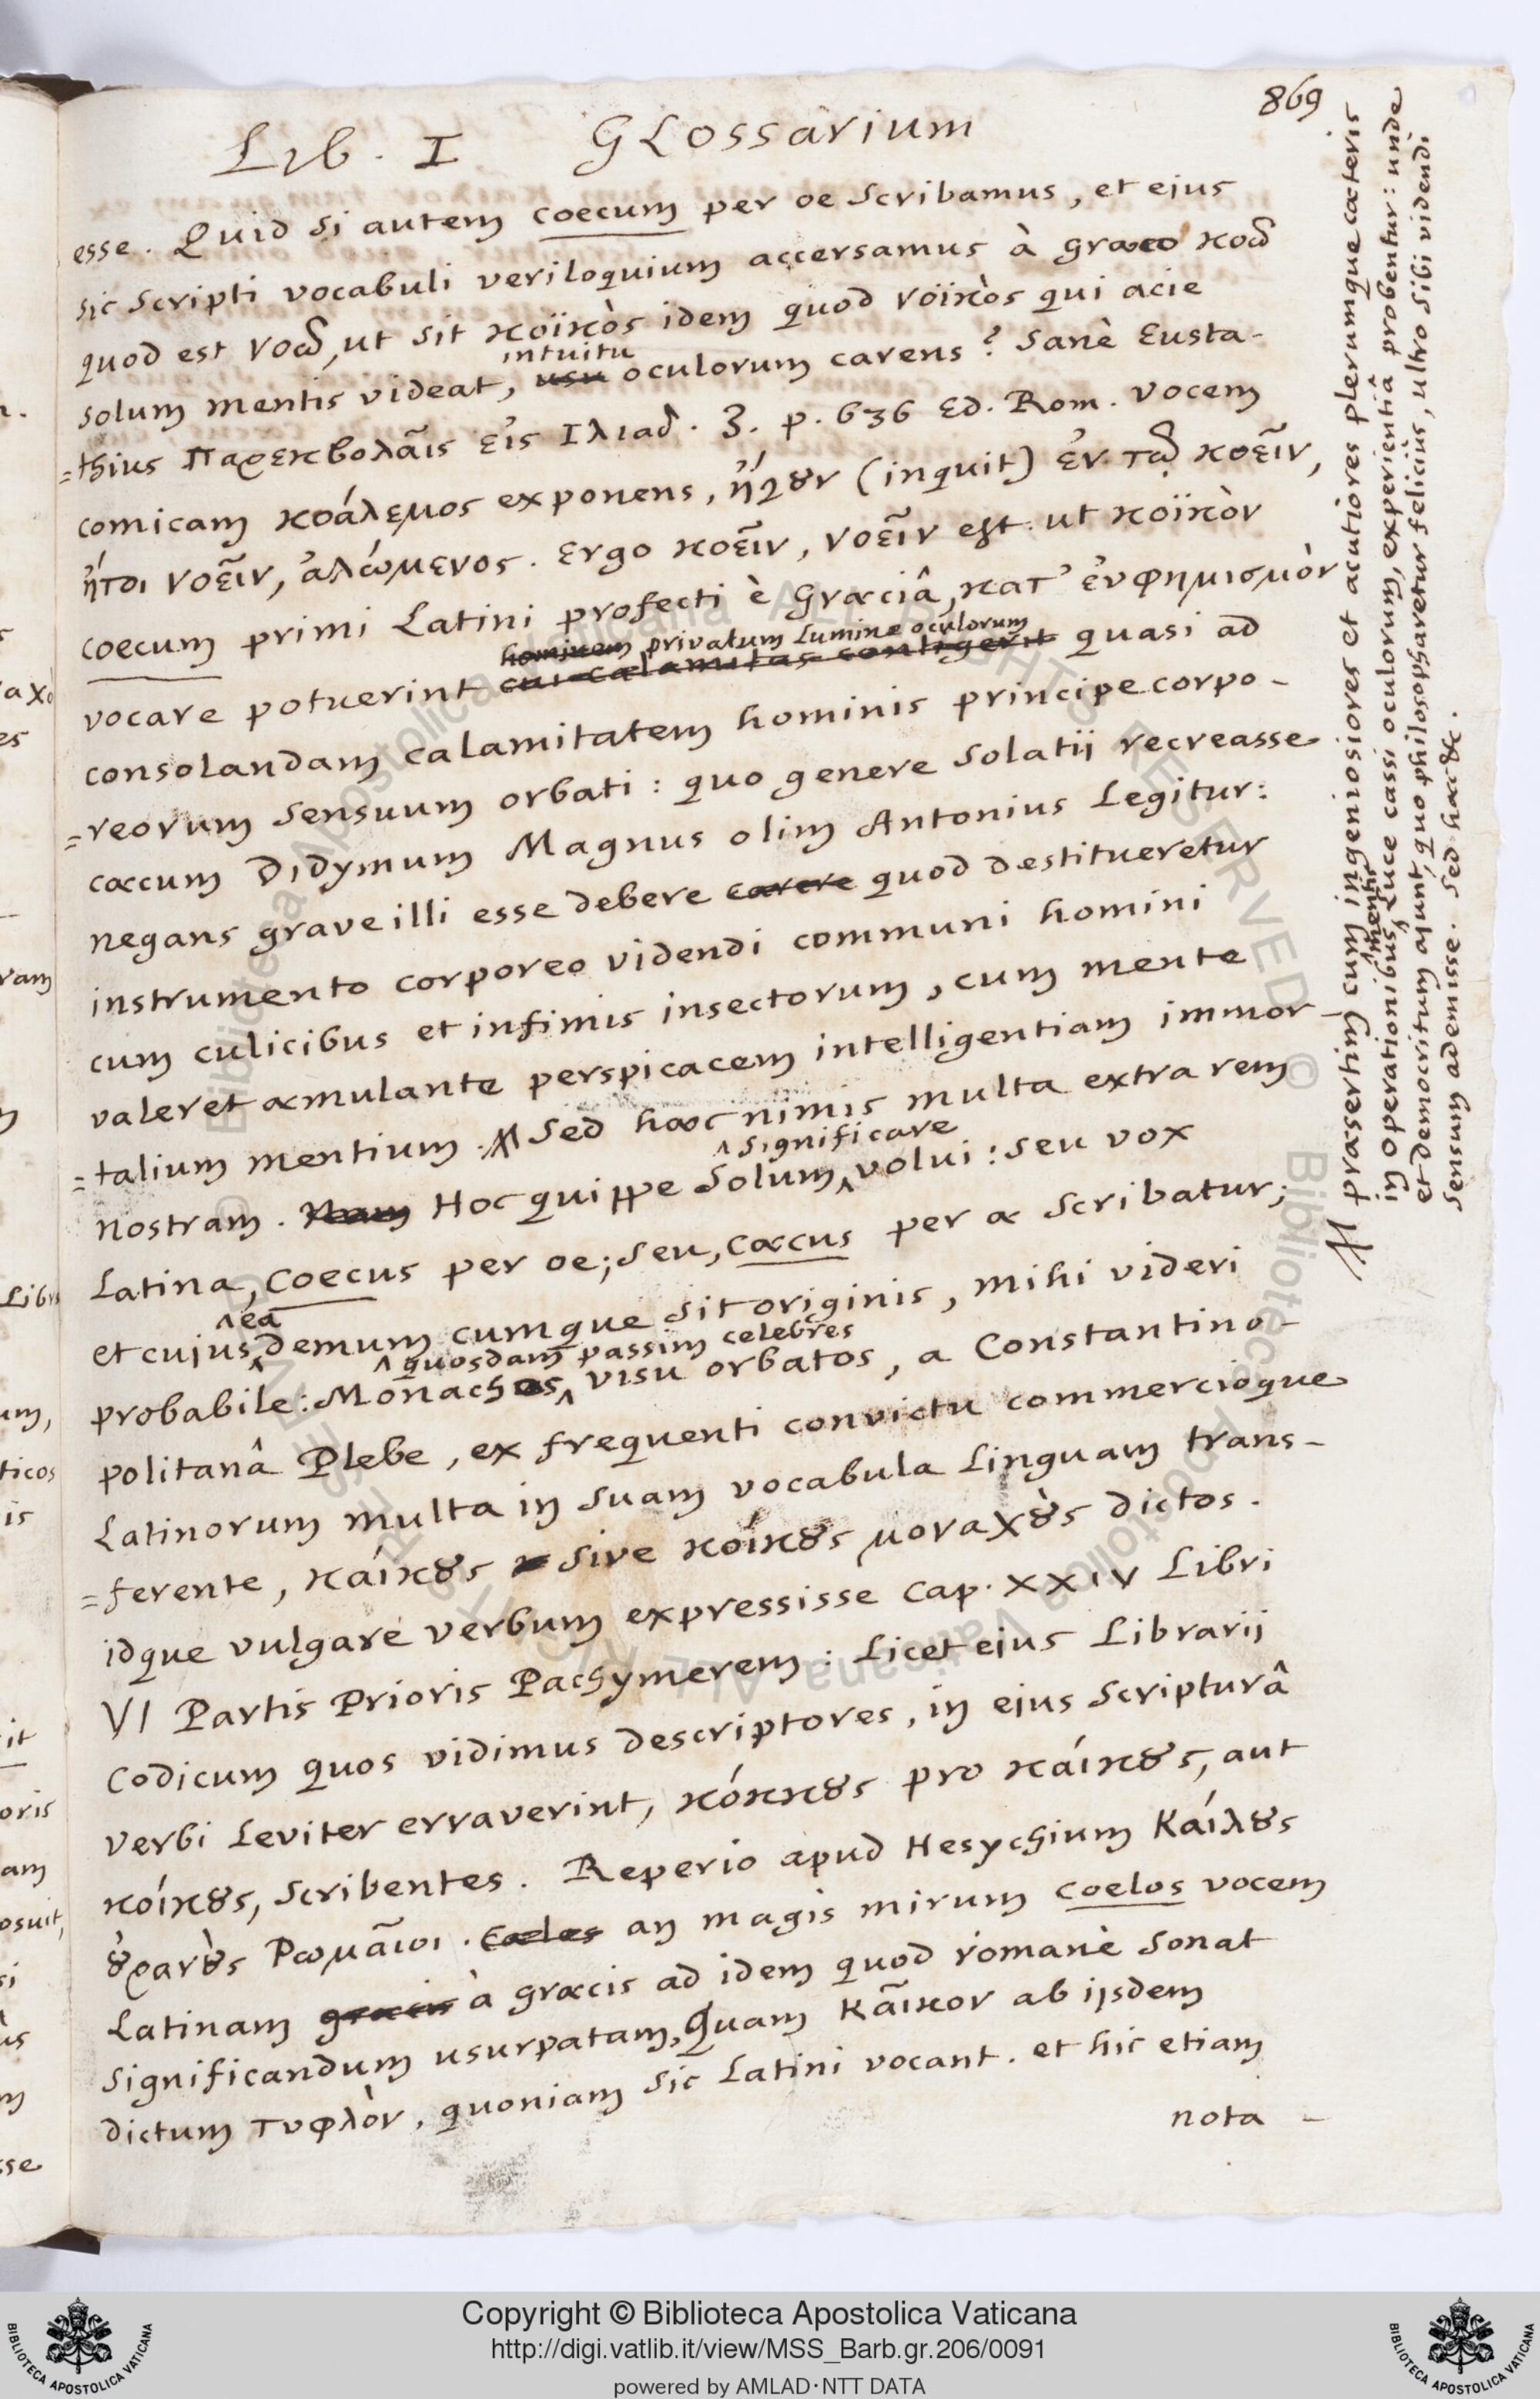 869
Lib. I Glossarium
esse. Quid si autem coecum per oe scribamus, et ejus
sic scripti vocabuli veriloquium accersamus à græco κοῶ
quod est νοῶ, ut sit κοϊκὸς idem quod νοϊκὸς qui acie
intuitu
solum mentis videat, usu oculorum carens? Sanè Eusta-
=thius Παρεκβολαῖς εἰς Ιλιαδ. 3. p. 636 Ed. Rom. vocem
comicam κοάλεμος exponens, ἤγȣν (inquit) ἐν τῷ κοεῖν,
ἤτοι νοεῖν, ἀλώμενος. Ergo κοεῖν, νοεῖν est. ut κοϊκὸν
coecum primi Latini profecti è Græciâ, κατ’ ἐυφημισμὸν
hominem privatum lumine oculorum
vocare potuerint cui calamitas contigerit quasi ad
consolandam calamitatem hominis principe corpo-
=reorum sensuum orbati: quo genere solatij recreasse
cæcum Didymum Magnus olim Antonius legitur:
negans grave illi esse debere carere quod destitueretur
instrumento corporeo videndi communi homini
cum culicibus et infimis insectorum, cum mente
valeret æmulante perspicacem intelligentiam immor-
=talium mentium. Sed hæc nimis multa extra rem
significare
nostram. Nam Hoc quippe solum volui: seu vox
Latina, Coecus per oe; seu, cæcus per æ scribatur;
ea
et cujus demum cumque sit originis, mihi videri
quosdam passim celebres
probabile: Monachos visu orbatos, a Constantino-
politanâ Plebe, ex frequenti convictu commercioque
Latinorum multa in suam vocabula linguam trans-
=ferente, κάικȣς sive κοίκȣς μοναχȣ̀ς dictos.
idque vulgare verbum expressisse cap. XXIV Libri
VI Partis Prioris Pachymerem: licet ejus Librarij
Codicum quos vidimus descriptores, in ejus scripturâ
verbi leviter erraverint, κόκκȣς pro κάικȣς, aut
κοίκȣς, scribentes. Reperio apud Hesychium Κάιλȣς
ȣ̓ρανȣ̀ς Ρωμᾶιοι. Cælos an magis mirum coelos vocem
Latinam græcis à græcis ad idem quod romanè sonat
significandum usurpatam, Quam κᾶικον ab ijsdem
dictum τυφλὸν, quoniam sic Latini vocant. et hic etiam
nota -
præsertim cum ingeniosiores et acutiores plerumque cæteris
mentis
in operationibus, luce cassi oculorum, experientiâ probentur: unde
et democritum ajunt, quo philosopharetur felicius, ultro sibi videndi
sensum ademisse. Sed hæc &c.
Copyright © Biblioteca Apostolica Vaticana
http://digi.vatlib.it/view/MSS_Barb.gr.206/0091
powered by AMLAD·NTT DATA
BIBLIOTECA APOSTOLICA VATICANA
BIBLIOTECA APOSTOLICA VATICANA